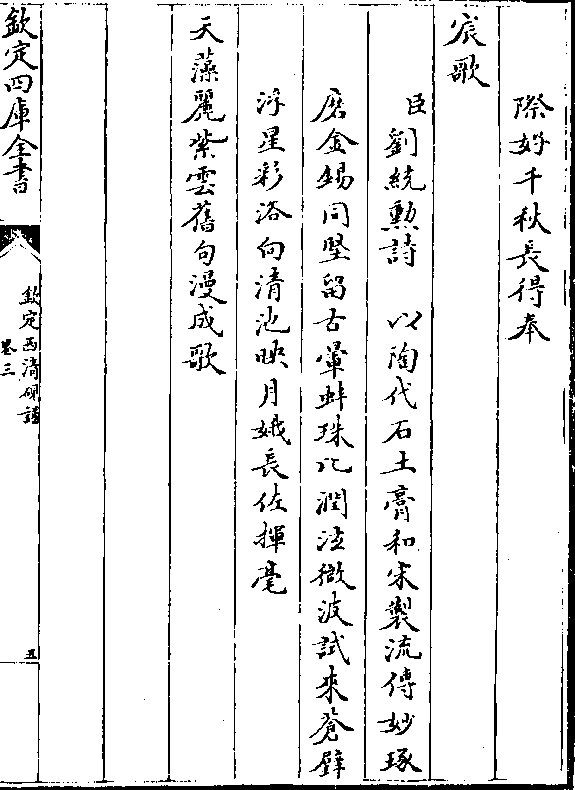 際千秋長得奉
宸歌
臣劉統勲詩　以陶代石土膏和宋製流傳妙琢
磨金錫同堅留古暈蚌珠比潤微波試來蒼璧
浮星彩浴向清池映月娥長佐揮毫
天藻麗紫雲舊句漫成歌
欽定四庫全書
欽定西清硯譜
卷三
五